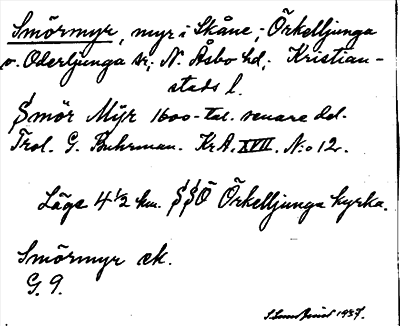 Smörmyr, myr i Skåne; Örkelljunga
o. Oderljunga sr; N. Åsbo hd; Kristian-
stads l.
Smör Mÿr 1600-tal. senare del.
Trol. G. Buhrman. KrA. XVII. N:o 12.
Läge 4 1/2 km. SSÖ Örkelljunga kyrka.
Smörmyr ek.
G. 9.
1937.